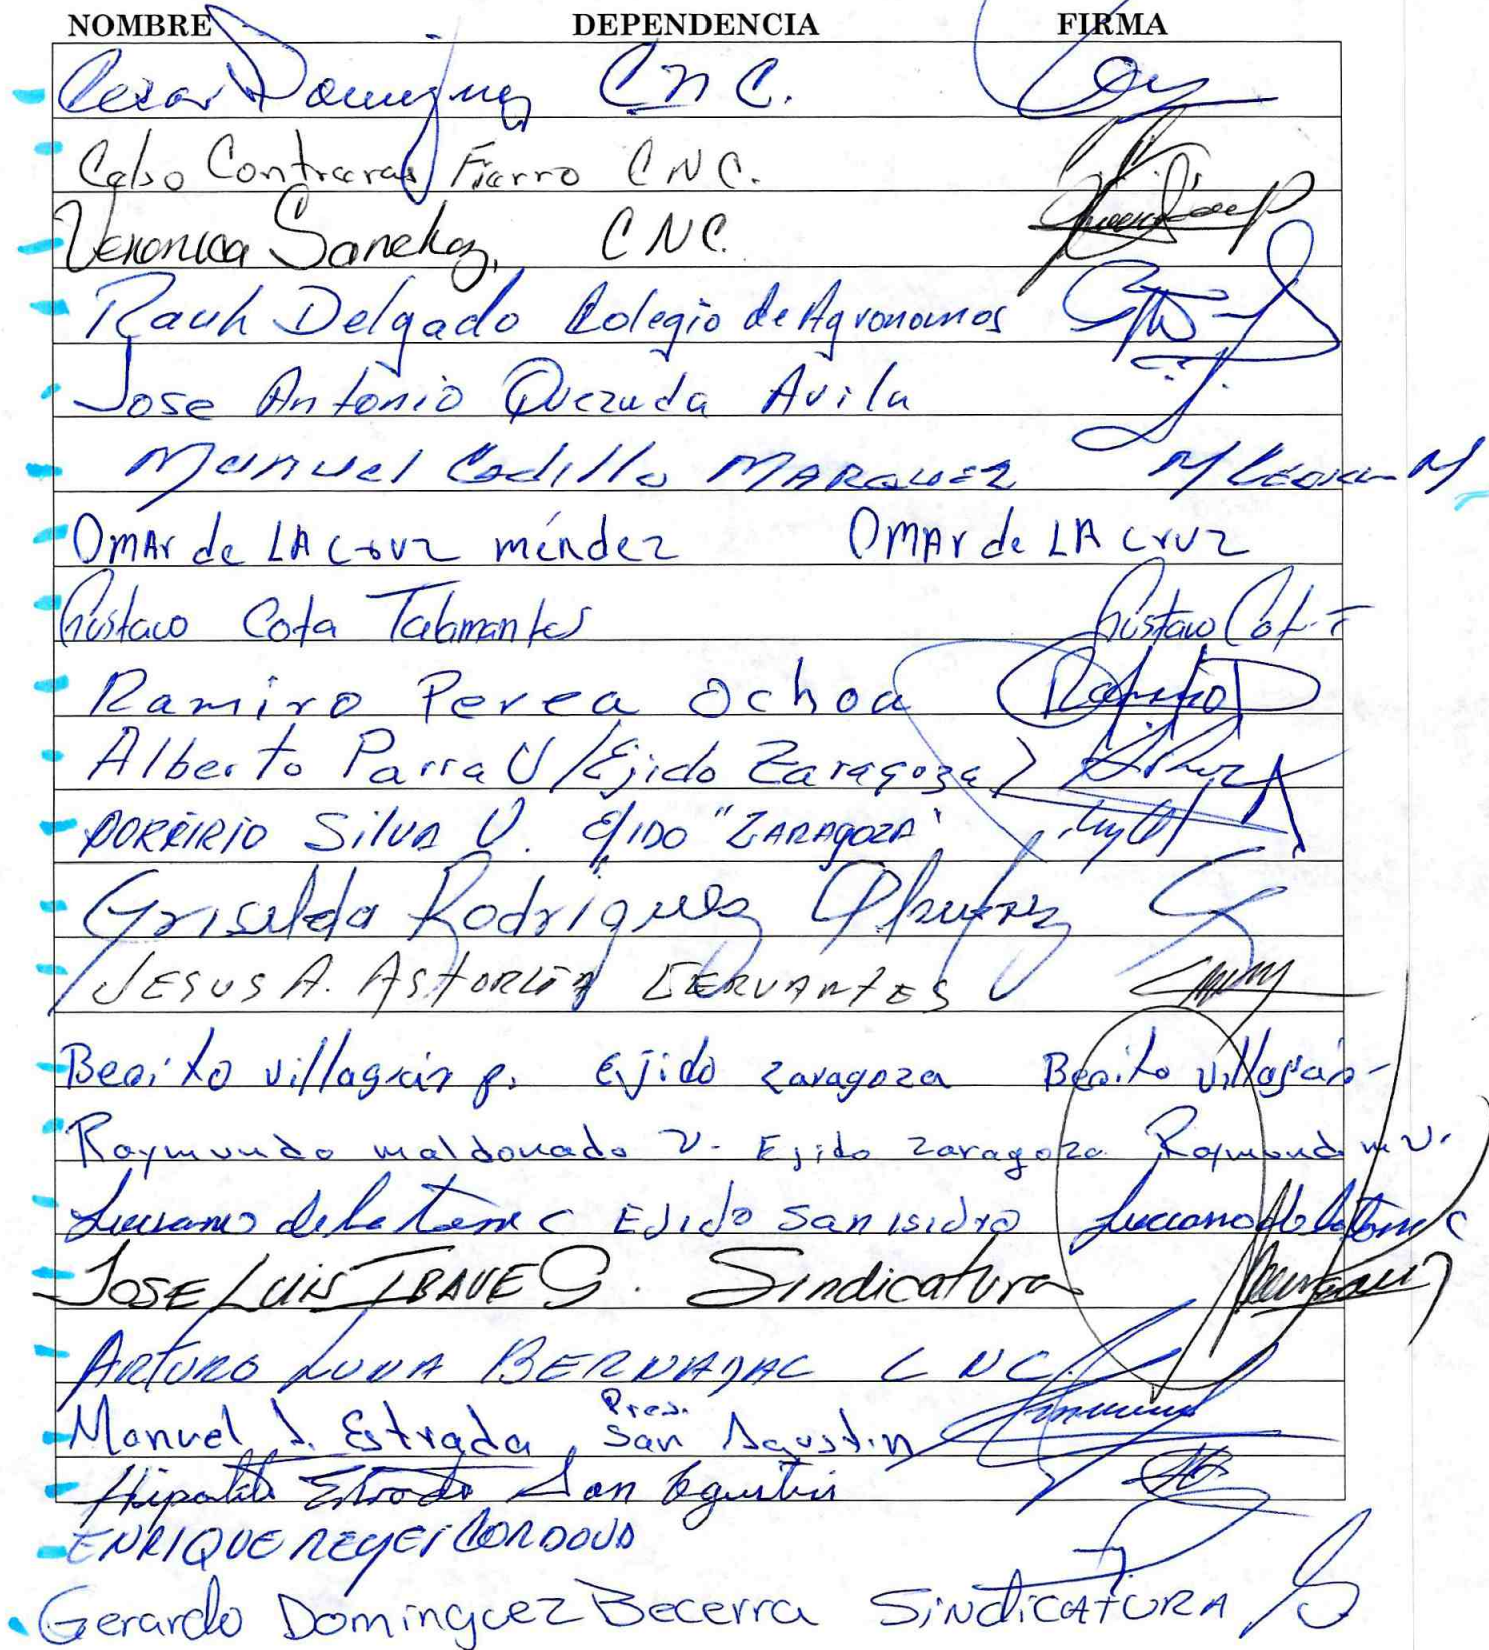 NOMBRE DEPENDENCIA FIRMA
Cezar Dominguez C.N.C.
Celso Contreras Fierro CNC.
Veronica Sanchez, CNC.
Raul Delgado Colegio de Agronomos
Jose Antonio Quezada Avila
Manuel Cedillo MARQUEZ M Cedillo M
OMAr de LA Cruz méndez OMAr de LA Cruz
Gustavo Cota Talamantes Gustavo Cota T
Ramiro Perea Ochoa Ramiro P
Alberto Parra U / Ejido Zaragoza
PORFIRIO SILVA V. EJIDO "ZARAGOZA"
Griselda Rodriguez
JESUS A. ASTORGA CERVANTES
Benito villagrán p. Ejido zaragoza Benito Villagrán
Raymundo maldonado V. Ejido zaragoza Raymundo m V.
Luciano de la Torre C EJido San isidro Luciano de la Torre C
JOSE LUIS IBAVE G. Sindicatura
ARTURO LUNA BERNADAC CNC.
Manuel J. Estrada, Pres. San Agustin
Hipolito Estrada San Agustin
ENRIQUE REYES CORDOVA
Gerardo Dominguez Becerra SiNdiCATURA